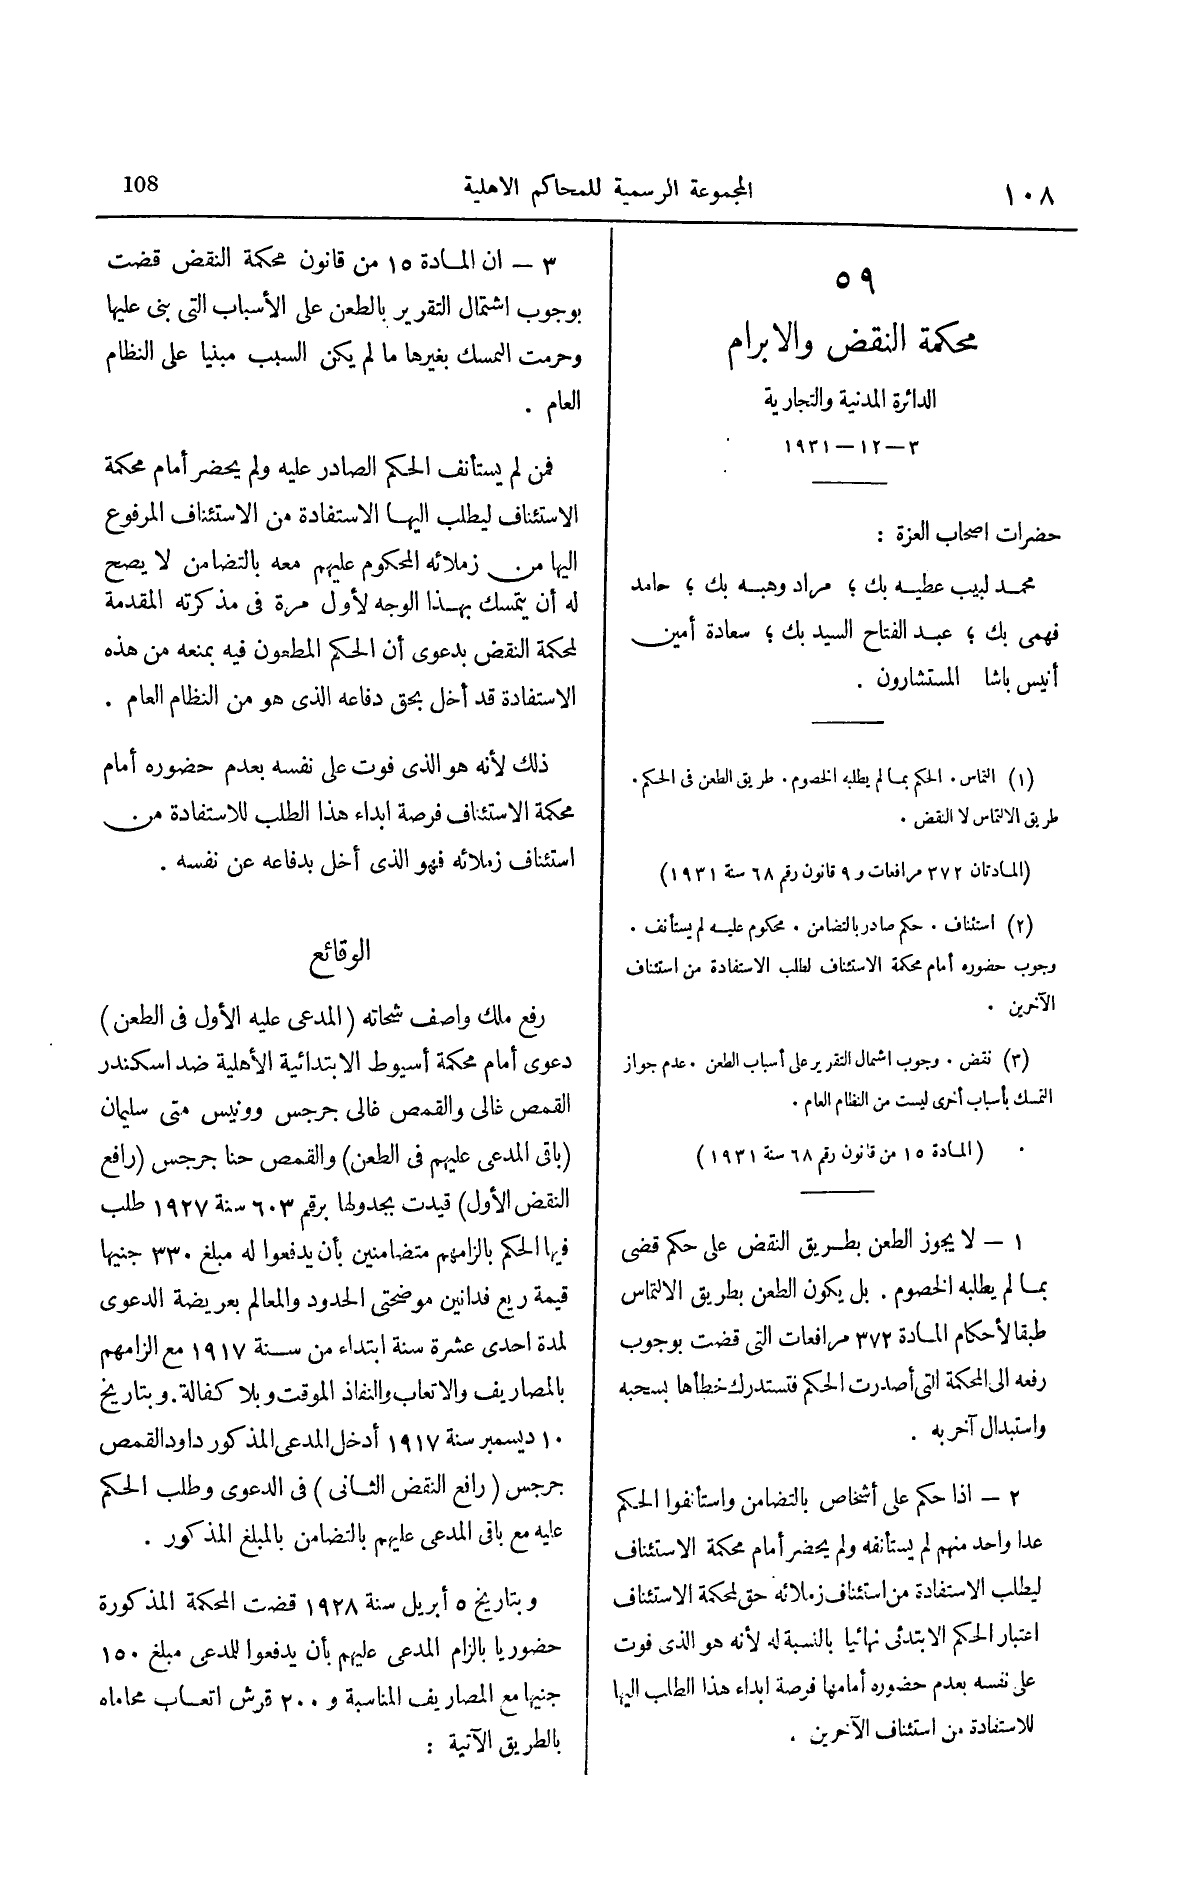 ١٠٨
المجموعة الرسمية للمحاكم الاهلية
108
٥٩
محكمة النقض والابرام
الدائرة المدنية والتجارية
٣ – ١٢ – ١٩٣١
حضرات اصحاب العزة :
محمد لبيب عطيه بك ؛ مراد وهبه بك ؛ حامد
فهمى بك ؛ عبد الفتاح السيد بك ؛ سعادة أمين
أنيس باشا المستشارون .
(١) التماس . الحكم بما لم يطلبه الخصوم . طريق الطعن فى الحكم .
طريق الالتماس لا النقض .
(المادتان ٣٧٢ مرافعات و ٩ قانون رقم ٦٨ سنة ١٩٣١)
(٢) استئناف . حكم صادر بالتضامن . محكوم عليه لم يستأنف .
وجوب حضوره أمام محكمة الاستئناف لطلب الاستفادة من استئناف
الآخرين .
(٣) نقض . وجوب اشمال التقرير على أسباب الطعن . عدم جواز
التمسك بأسباب أخرى ليست من النظام العام .
(المادة ١٥ من قانون رقم ٦٨ سنة ١٩٣١)
١ – لا يجوز الطعن بطريق النقض على حكم قضى
بما لم يطلبه الخصوم . بل يكون الطعن بطريق الالتماس
طبقا لأحكام المادة ٣٧٢ مرافعات التى قضت بوجوب
رفعه الى المحكمة التى أصدرت الحكم فتستدرك خطأها بسحبه
واستبدال آخر به .
٢ – اذا حكم على أشخاص بالتضامن واستأنفوا الحكم
عدا واحد منهم لم يستأنفه ولم يحضر أمام محكمة الاستئناف
ليطلب الاستفادة من استئناف زملائه حق لمحكمة الاستئناف
اعتبار الحكم الابتدئى نهائيا بالنسبة له لأنه هو الذى فوت
على نفسه بعدم حضوره أمامها فرصة ابداء هذا الطلب اليها
للاستفادة من استئناف الآخرين .
٣ – ان المادة ١٥ من قانون محكمة النقض قضت
بوجوب اشتمال التقرير بالطعن على الأسباب التى بنى عليها
وحرمت التمسك بغيرها ما لم يكن السبب مبنيا على النظام
العام .
فمن لم يستأنف الحكم الصادر عليه ولم يحضر أمام محكمة
الاستئناف ليطلب اليها الاستفادة من الاستئناف المرفوع
اليها من زملائه المحكوم عليهم معه بالتضامن لا يصح
له أن يتمسك بهذا الوجه لأول مرة فى مذكرته المقدمة
لمحكمة النقض بدعوى أن الحكم المطعون فيه بمنعه من هذه
الاستفادة قد أخل بحق دفاعه الذى هو من النظام العام .
ذلك لأنه هو الذى فوت على نفسه بعدم حضوره أمام
محكمة الاستئناف فرصة ابداء هذا الطلب للاستفادة من
استئناف زملائه فهو الذى أخل بدفاعه عن نفسه .
الوقائع
رفع ملك واصف شحاته (المدعى عليه الأول فى الطعن)
دعوى أمام محكمة أسيوط الابتدائية الأهلية ضد اسكندر
القمص غالى والقمص غالى جرجس وونيس متى سليمان
(باقى المدعى عليهم فى الطعن) والقمص حنا جرجس (رافع
النقض الأول) قيدت بجدولها برقم ٦٠٣ سنة ١٩٢٧ طلب
فيها الحكم بالزامهم متضامنين بأن يدفعوا له مبلغ ٣٣٠ جنيها
قيمة ريع فدانين موضحتى الحدود والمعالم بعريضة الدعوى
لمدة احدى عشرة سنة ابتداء من سنة ١٩١٧ مع الزامهم
بالمصاريف والاتعاب والنفاذ الموقت وبلا كفالة . وبتاريخ
١٠ ديسمبر سنة ١٩١٧ أدخل المدعى المذكور داود القمص
جرجس (رافع النقض الثانى) فى الدعوى وطلب الحكم
عليه مع باقى المدعى عليهم بالتضامن بالمبلغ المذكور .
وبتاريخ ٥ أبريل سنة ١٩٢٨ قضت المحكمة المذكورة
حضوريا بالزام المدعى عليهم بأن يدفعوا للمدعى مبلغ ١٥٠
جنيها مع المصاريف المناسبة و ٢٠٠ قرش اتعاب محاماه
بالطريق الآتية :